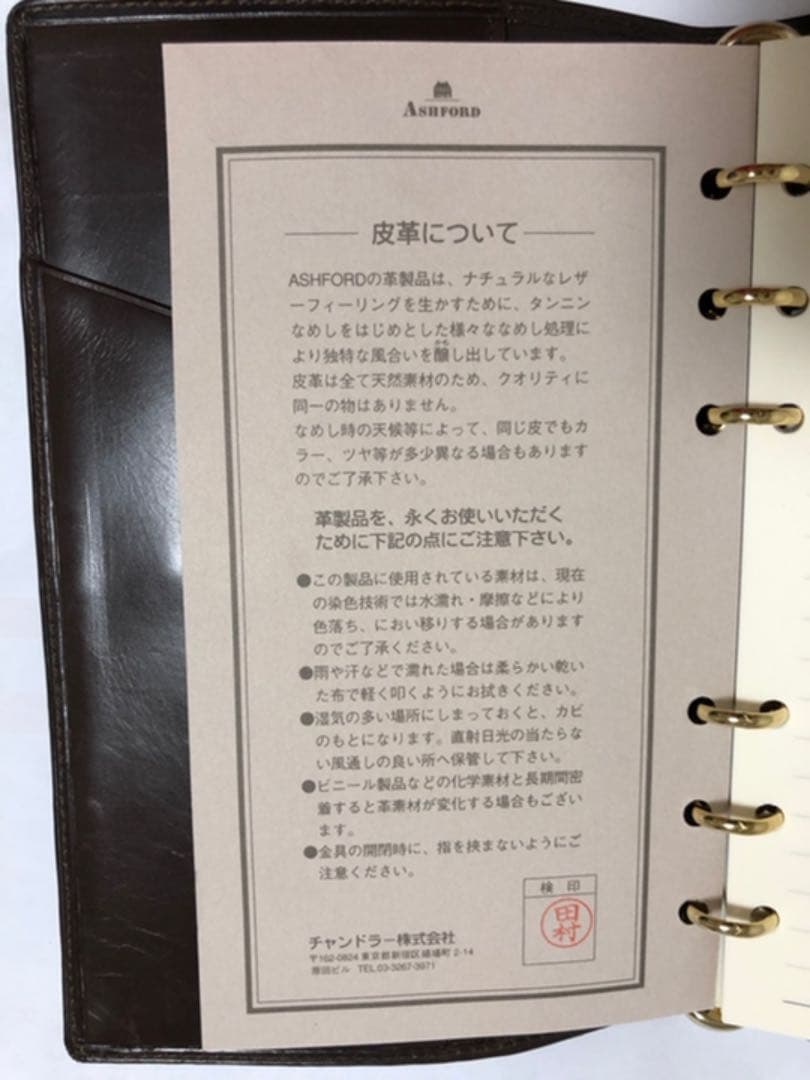 ASHFORD
皮革について
ASHFORDの革製品は、ナチュラルなレザ
ーフィーリングを生かすために、タンニン
なめしをはじめとした様々ななめし処理に
より独特な風合いを醸し出しています。
皮革は全て天然素材のため、クオリティに
同一の物はありません。
なめし時の天候等によって、同じ皮でもカ
ラー、ツヤ等が多少異なる場合もあります
のでご了承下さい。
革製品を、永くお使いいただく
ために下記の点にご注意下さい。
●この製品に使用されている素材は、現在
の染色技術では水濡れ・摩擦などにより
色落ち、におい移りする場合があります
のでご了承ください。
●雨や汗などで濡れた場合は柔らかい乾い
た布で軽く叩くようにお拭きください。
●湿気の多い場所にしまっておくと、カビ
のもとになります。直射日光の当たらな
い風通しの良い所へ保管して下さい。
●ビニール製品などの化学素材と長期間密
着すると革素材が変化する場合もござい
ます。
●金具の開閉時に、指を挟まないようにご
注意ください。
検 印
田村
チャンドラー株式会社
〒162-0824 東京都新宿区揚場町 2-14
ビル TEL.03-3267-3971